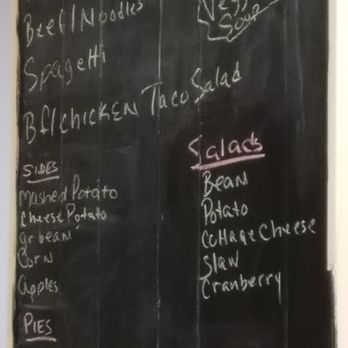 Beef/Noodles
Vegg
Soup
Spagetti
Bf/Chicken Taco Salad
Sides
Mashed Potato
Cheese Potato
gr bean
Corn
Apples
Pies
Salads
Bean
Potato
Cottage Cheese
Slaw
Cranberry